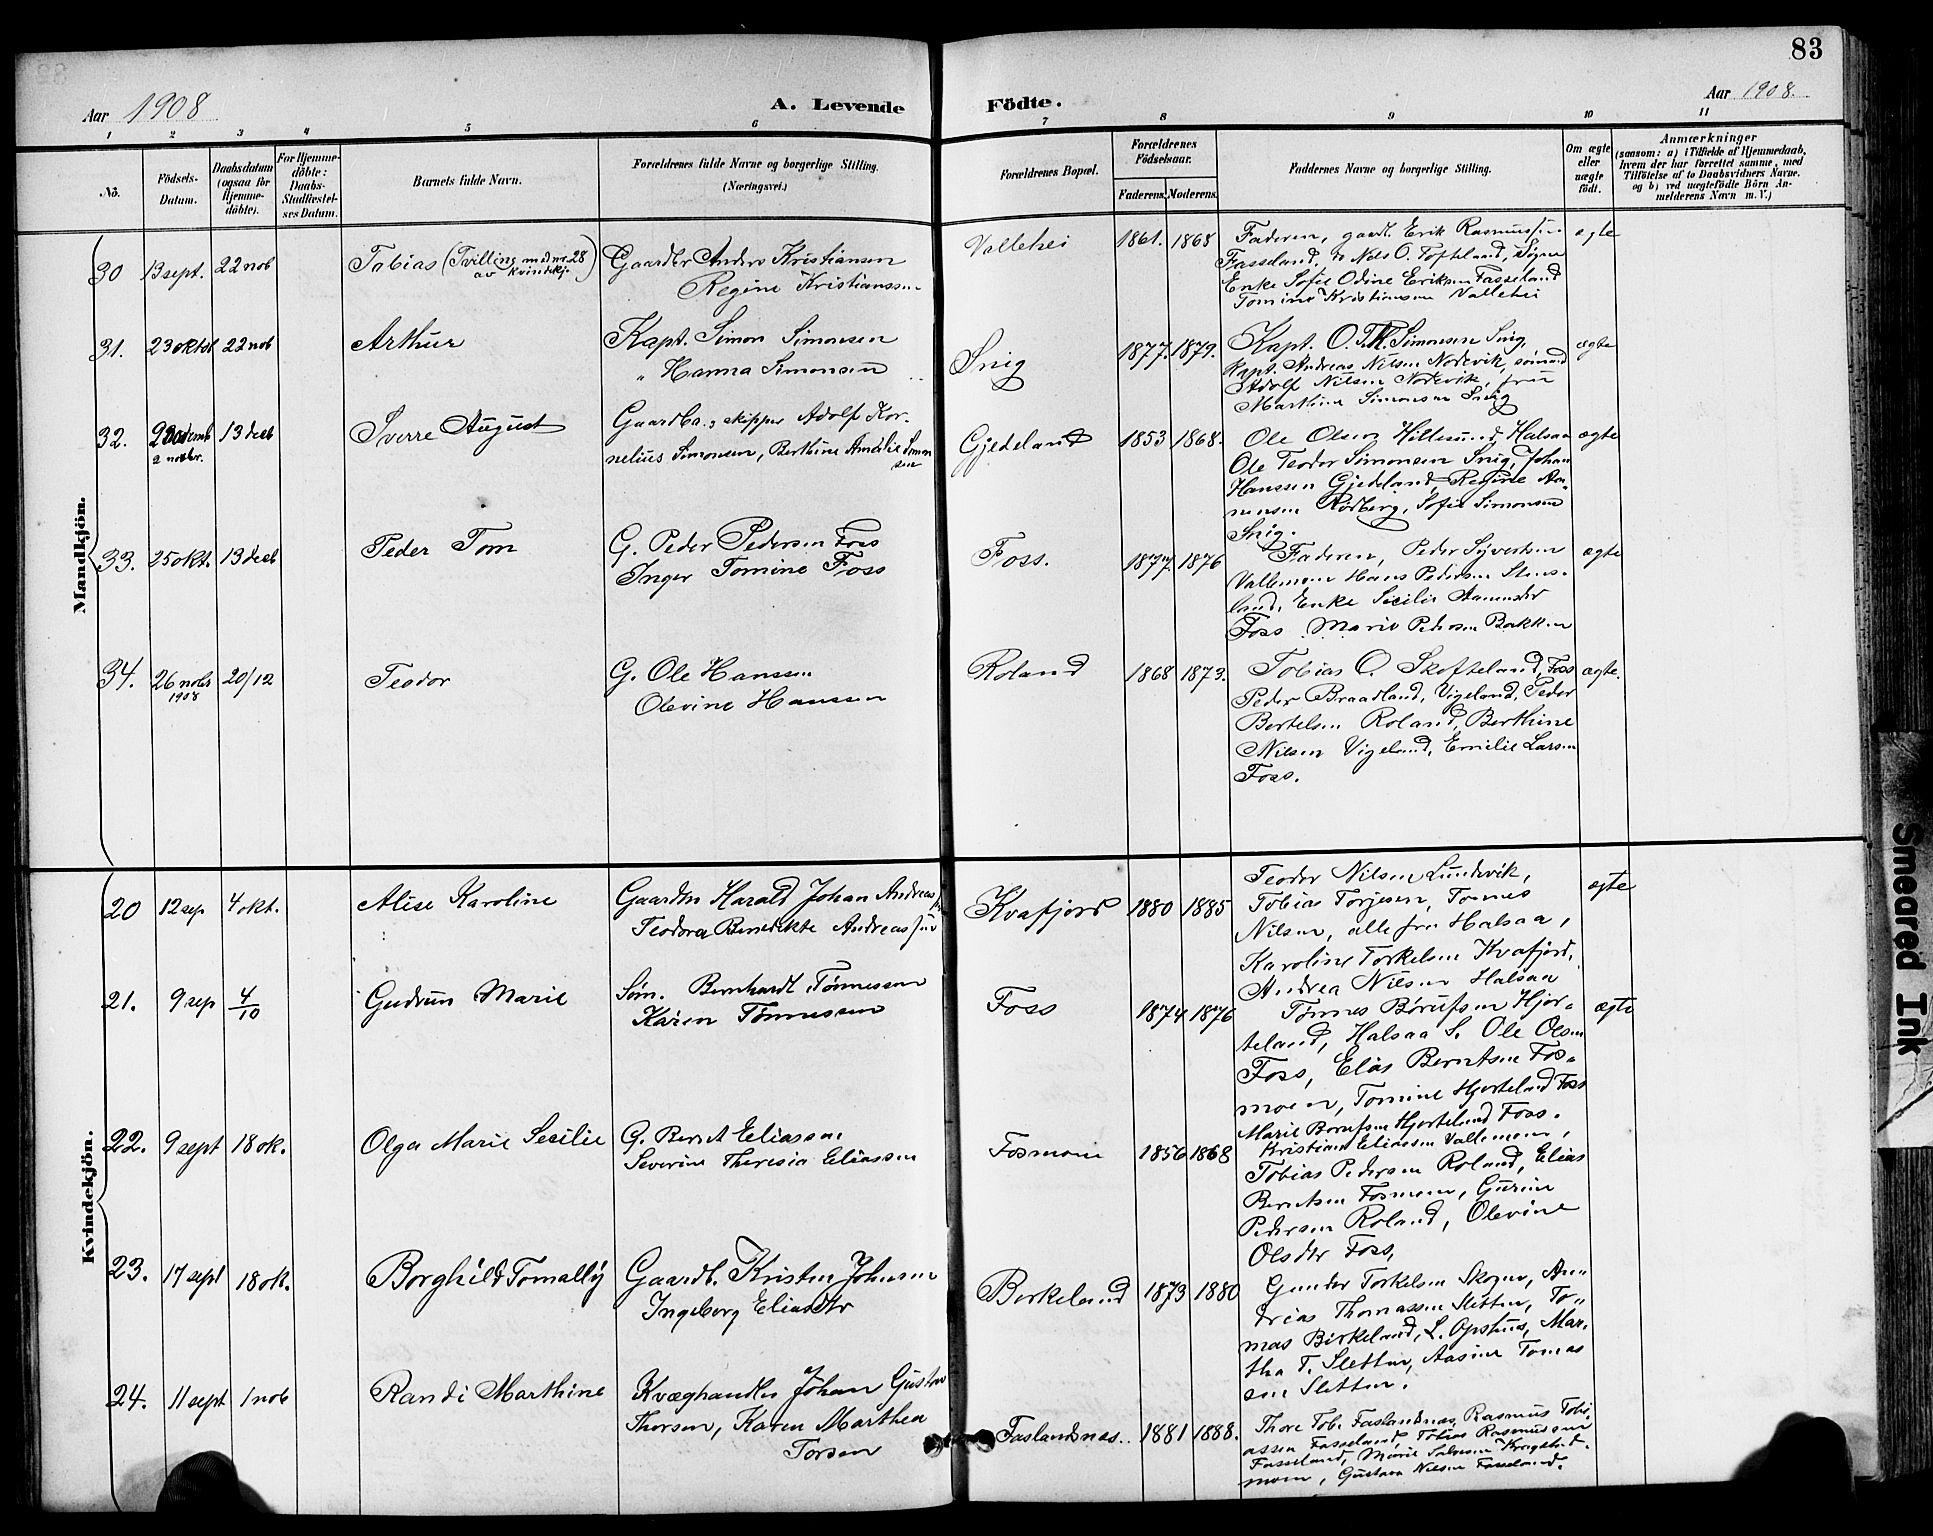 83
Aar 1908
A. Levende Födte.
Aar 1908.
1 2 3 4 5 6 7 8 9 10 11
No.
Födsels-Datum.
Daabsdatum (ogsaa for Hjemme-döbte).
For Hjemme-döbte: Daabs-Stadfæstel-ses Datum.
Barnets fulde Navn.
Forældrenes fulde Navne og borgerlige Stilling.
(Næringsvei.)
Forældrenes Bopæl.
Forældrenes Födselsaar.
Faderens. Moderens.
Faddernes Navne og borgerlige Stilling.
Om ægte eller uægte födt.
Anmærkninger
(saasom: a) i Tilfælde af Hjemmedaab,
hvem der har forrettet samme, med
Tilföielse af to Daabsvidners Navne.
og b) ved uægtefödte Börn An-
melderens Navn m. V.)
Mandkjön.
30 13 sept. 22 nob Tobias (Tvilling med no 28
av kvindekj.)
Gaardbr Anders Kristiansen
Regine Kristianssen
Vallehei 1861. 1868
Faderen, gaardl. Erik Rasmussen
Fasseland, do Nels O. Tofteland, Søgne
Enke Sofie Odine Eriksen Fasseland
Tomine Kristiansen Vallehei
ægte
31. 23 oktob 22 nob Arthur
Kapt. Simon Simonsen
" Hanna Simonsen
Snig 1877. 1879.
Kapt. O. T. Simonsen Snig,
Kapt. Andreas Nilsen Nodevik, sømand
Adolf Nilsen Nodevik, frue
Marthine Simonsen Snig
ægte
32. 2 nobr. 13 decb Sverre August
Gaardbr., skipper Adolf Kor-
nelius Simonsen, Berthine Amalie Simon
sen
Gjedeland 1853 1868.
Ole Olsen Hillesund, Halsaa
Ole Teodor Simonsen Snig, Johan
Hanssen Gjedeland, Regine
Rödberg, Sofie Simonsen
Snig.
ægte
33. 25 okt. 13 decb Peder Tom
G. Peder Pedersen Foss
Inger Tomine Foss
Foss. 1877. 1876
Faderen, Peder Syvertsen
Vallemoen Hans Pedersen Stens-
land, Enke Secilie
Foss. Marie Pedersen Bakken
ægte
34. 26 nobr 1908 20/12 Teodor
G. Ole Hanssen
Olevine Hanssen
Roland 1868 1873.
Tobias O. Skofteland, Foss
Peder Braadland, Vigeland, Peder
Bertelsen Roland, Berthine
Nilsen Vigeland, Emilie Larsen
Foss.
ægte.
Kvindekjön.
20 12 sep 4 okt. Alise Karoline
Gaardbr Harald Johan Andreas
Teodora Benedikte Andreassen
Kvafjord 1880 1885
Teodor Nilsen Lundevik,
Tobias Torjesen, Tønnes
Nilsen, alle fra Halsaa,
Karoline Torkelsen Kvafjord,
Andrea Nilsen Halsaa
ægte
21. 9 sep 4/10 Gudrun Marie
Søm. Bernhardt Tønnessen
Karen Tønnessen
Foss 1874 1876
Tønnes Børufsen Hjor-
teland, Halsaa S. Ole Olsen
Foss, Elias Berntsen Fos-
moen, Tomine Hjorteland Foss
Marie Børufsen Hjorteland Foss.
ægte
22. 9 sept 18 ok. Olga Marie Secilie
G. Bernt Eliassen
Severine Theresia Eliassen
Fosmoen 1856 1868
Kristian Eliassen Vallemoen,
Tobias Pedersen Roland, Elias
Berntsen Fosmoen, Gurine
Pedersen Roland, Olevine
Olsdtr Foss,
23. 17 sept 18 ok. Borghild Tomally
Gaardb. Kristen Johnsen
Ingeborg Eliasdtr
Birkeland 1873 1880
Gunder Torkelsen Skogen, An-
drias Thomassen Sletten, To-
mas Birkeland, L. Opshus, Mar-
tha T. Sletten, Aasine Tomas
sen Sletten.
24. 11 sept 1 nob Randi Marthine
Kvæghandler Johan Gustav
Thorsen, Karen Marthea
Torsen
Faslandsnas.. 1881 1888.
Thore Tob. Faslandsnas, Rasmus Tobi-
assen Fasseland, Tobias Rasmussen
Fasseland, Marie Salvesen
moen, Gustava Nilsen Fasseland.
Smeared Ink